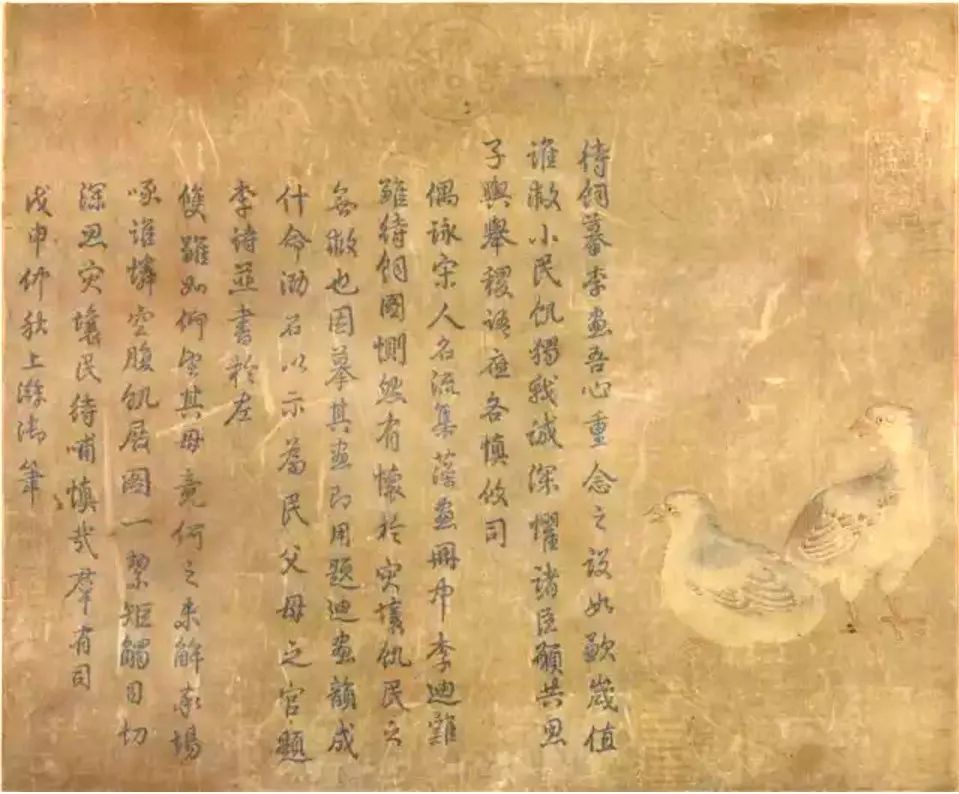 待飼摹李畫吾心重念之設如歉歲值
誰救小民飢獨我誠深懼諸臣願共思
子輿舉稷語應各慎攸司
偶詠宋人名流集藻畫冊中李迪雞
雛待飼圖惻然有懷於灾壤飢民之
無救也因摹其畫即用題迪畫韻成
什命泐石以示為民父母之官題
李詩並書於左
雙雛如仰望其母竟何之未解家場
啄誰憐空腹飢展圖一絜矩觸目切
深思灾壤民待哺慎哉羣有司
戊申仲秋上澣御筆